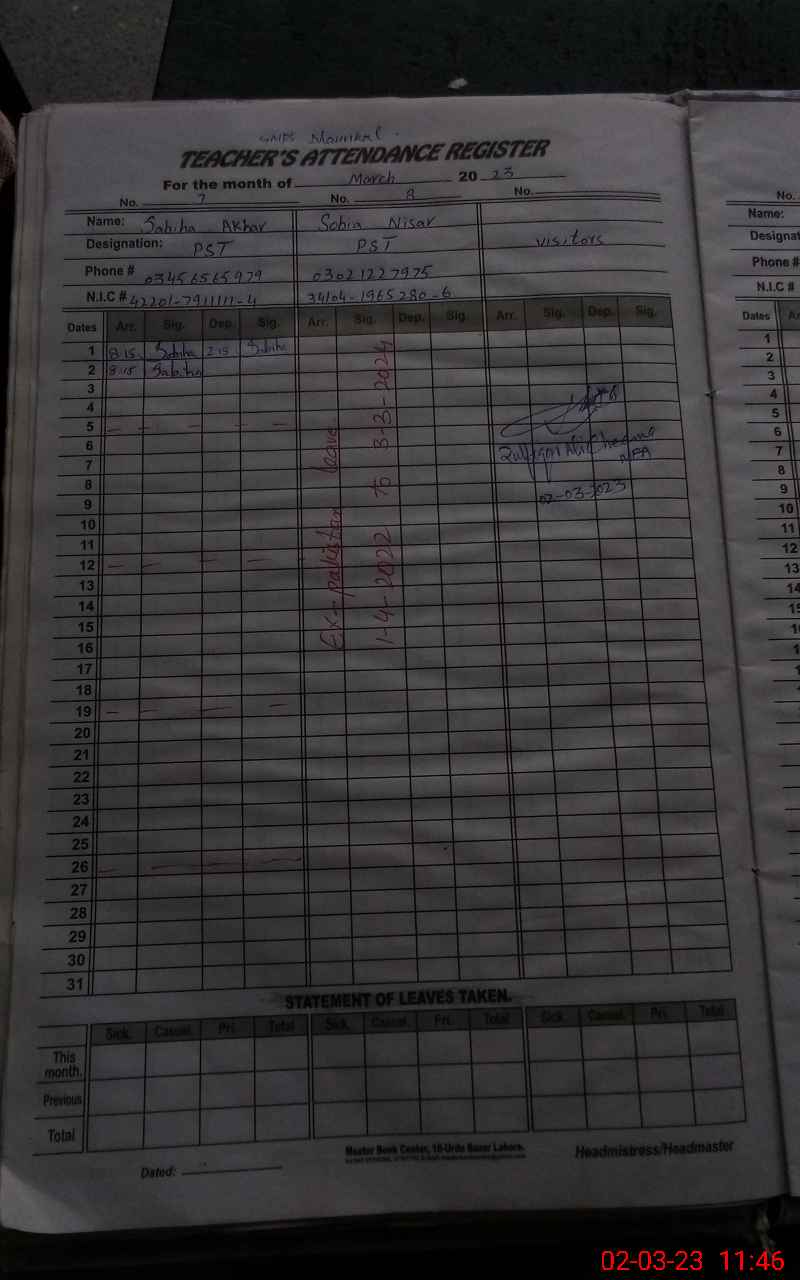 GMPS
TEACHER'S ATTENDANCE REGISTER
For the month of March 2023
No. 7 No. 8 No.
Name: Sabiha Akhar Sobia Nisar
Designation: PST PST visitors
Phone # 03456565979 03021227975
N.I.C # 42201-7911111-4 34104-1965280-6
Dates Arr. Sig. Dep. Sig. Arr. Sig. Dep. Sig. Arr. Sig. Dep. Sig.
1 8:15 Sabiha 2:15 Sabiha
2 8:15 Sabiha
3
4
5 — — — —
6
7
8
9
10
11
12 — — — —
13
14
15
16
17
18
19 — — — —
20
21
22
23
24
25
26 — — — —
27
28
29
30
31
Ex-pakistan leave
1-4-2022 to 3-3-2024
Ali Cheema
02-03-2023
STATEMENT OF LEAVES TAKEN.
Sick. Casual. Pri. Total Sick. Casual. Pri. Total Sick. Casual. Pri. Total
This month.
Previous
Total
Master Book Center, 16-Urdu Bazar Lahore.
Headmistress/Headmaster
Dated:
No.
Name:
Designat
Phone #
N.I.C #
Dates
1
2
3
4
5
6
7
8
9
10
11
12
13
14
02-03-23 11:46